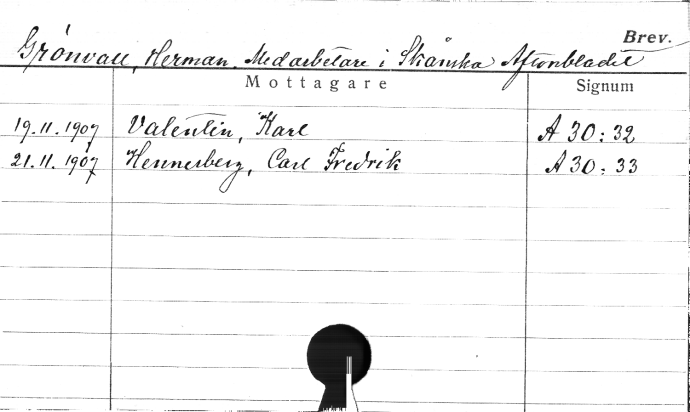 Brev.
Grönvall, Herman. Medarbetare i Skånska Aftonbladet
Mottagare Signum
19.11.1907 Valentin, Karl A 30:32
21.11.1907 Hennerberg, Carl Fredrik A 30:33